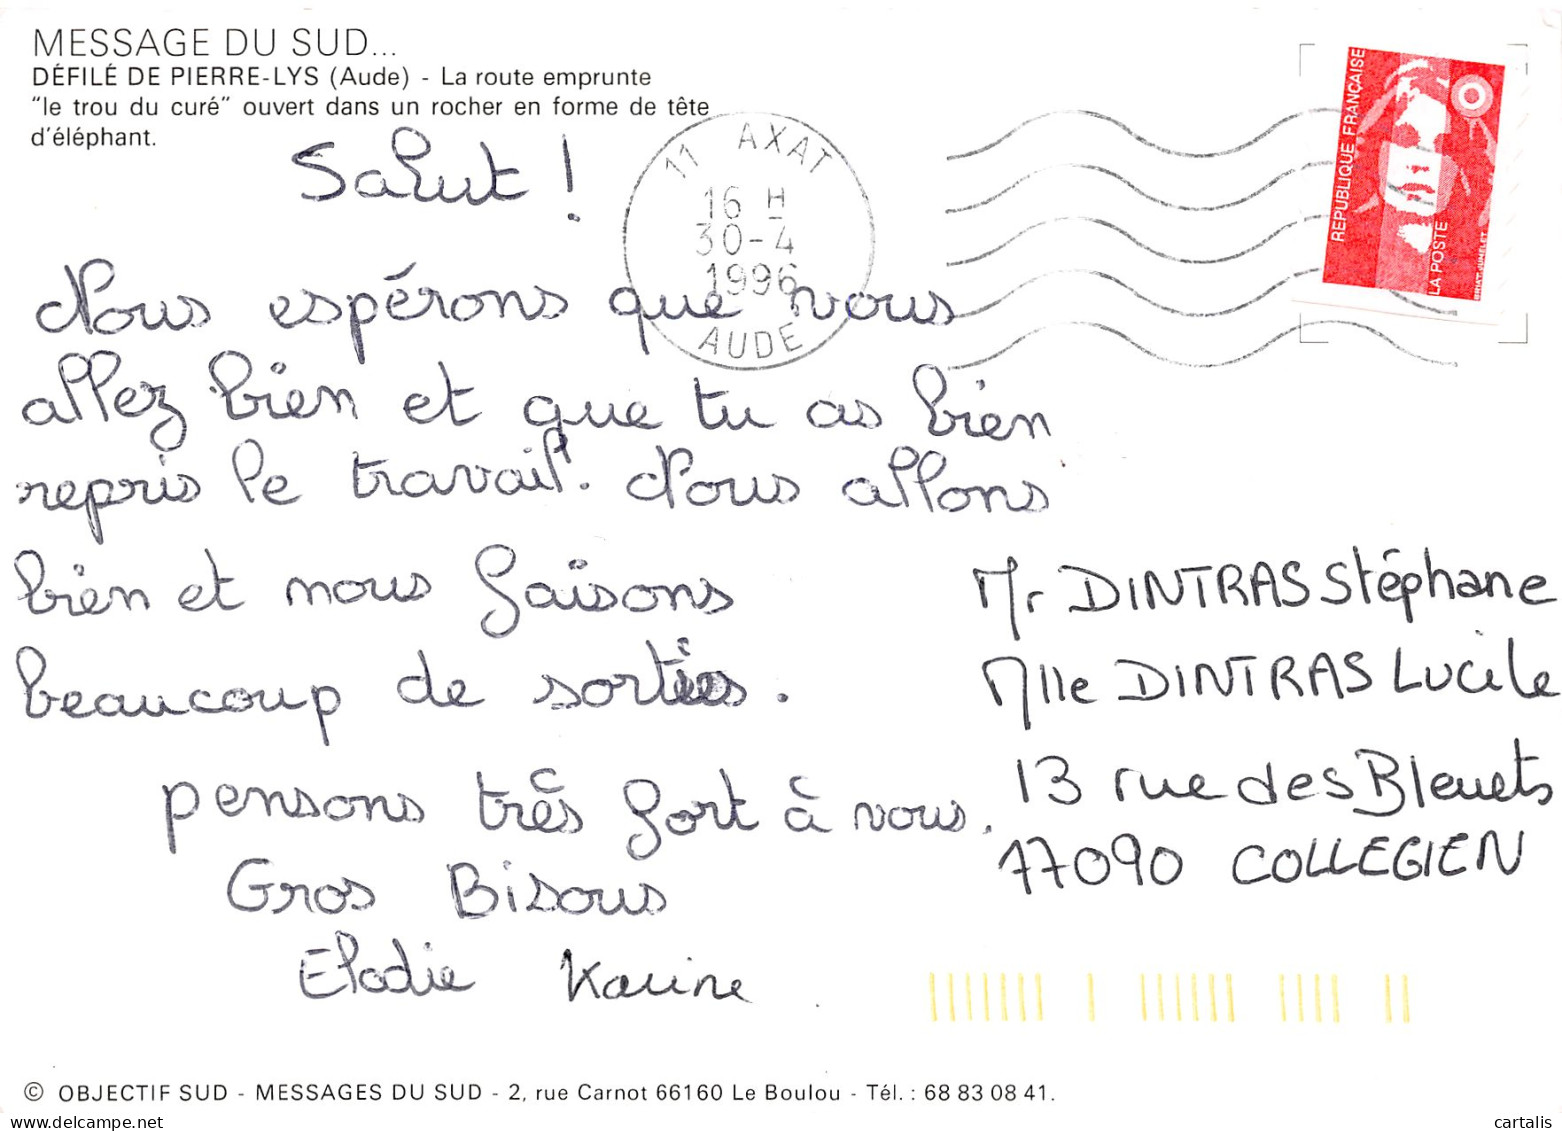 MESSAGE DU SUD...
DÉFILÉ DE PIERRE-LYS (Aude) - La route emprunte
"le trou du curé" ouvert dans un rocher en forme de tête
d'éléphant.
11 AXAT
16 H
30-4
1996
AUDE
REPUBLIQUE FRANÇAISE
LA POSTE
Salut !
Nous espérons que vous
allez bien et que tu as bien
repris le travail. Nous allons
bien et nous faisons
beaucoup de sorties.
pensons très fort à vous.
Gros Bisous
Elodie Karine
Mr DINTRAS Stéphane
Mlle DINTRAS Lucile
13 rue des Bleuets
77090 COLLEGIEN
© OBJECTIF SUD - MESSAGES DU SUD - 2, rue Carnot 66160 Le Boulou - Tél. : 68 83 08 41.
www.delcampe.net
cartalis